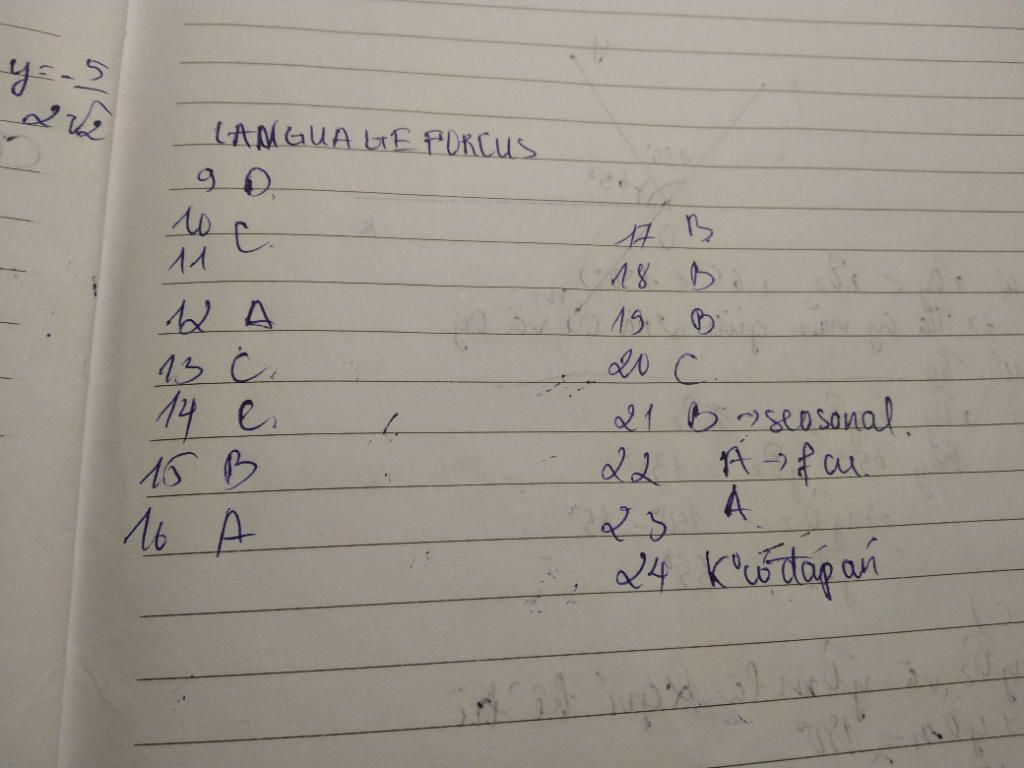 y = - 5
2√2
LANGUAGE FORCUS
9 D.
10 C.
11
12 A
13 C.
14 C.
15 B
16 A
17 B
18 B
19 B
20 C
21 B → seosonal.
22 A →
23 A.
24 K° có đáp án